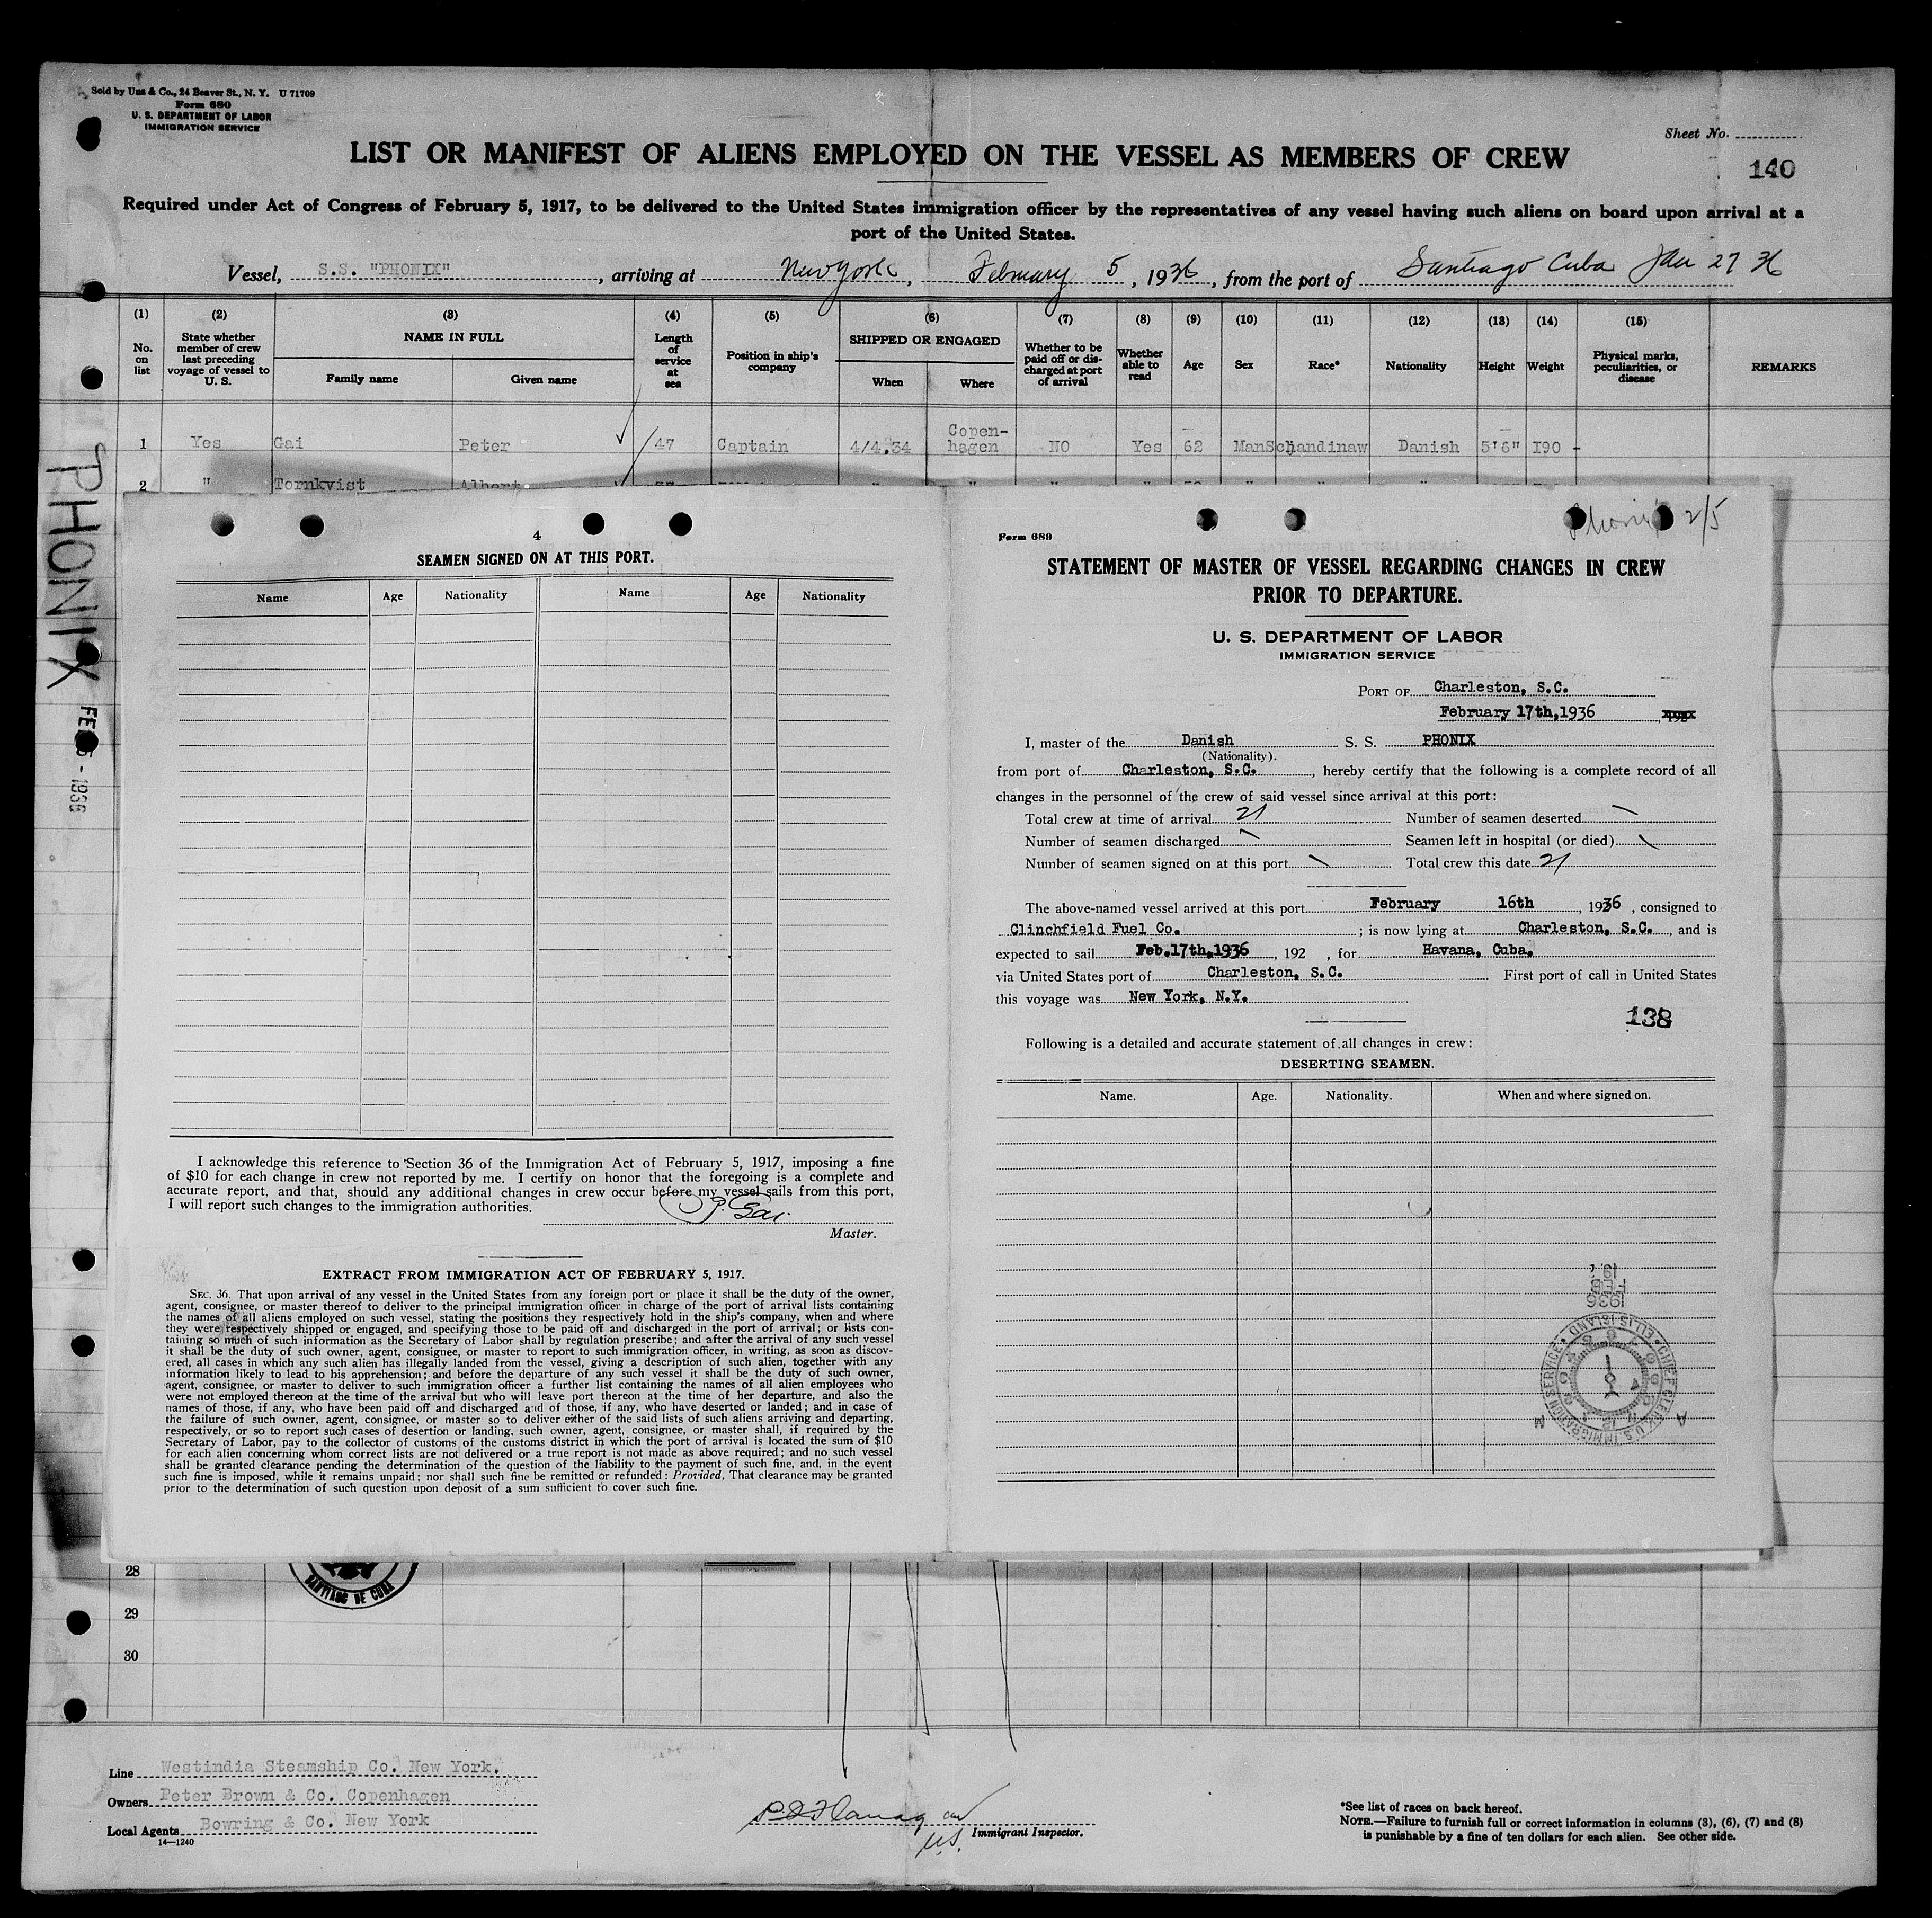 Sold by Unz & Co., 24 Beaver St., N. Y. U 71709
Form 680
U. S. DEPARTMENT OF LABOR
IMMIGRATION SERVICE
Sheet No.
140
LIST OR MANIFEST OF ALIENS EMPLOYED ON THE VESSEL AS MEMBERS OF CREW
Required under Act of Congress of February 5, 1917, to be delivered to the United States immigration officer by the representatives of any vessel having such aliens on board upon arrival at a
port of the United States.
Vessel, S.S. "PHONIX", arriving at New York, February 5, 1936, from the port of Santiago Cuba Jan 27 36
(1) (2) (3) (4) (5) (6) (7) (8) (9) (10) (11) (12) (13) (14) (15)
No. on list
State whether member of crew last preceding voyage of vessel to U. S.
NAME IN FULL
Family name Given name
Length of service at sea
Position in ship's company
SHIPPED OR ENGAGED
When Where
Whether to be paid off or discharged at port of arrival
Whether able to read
Age Sex Race* Nationality Height Weight
Physical marks, peculiarities, or disease
REMARKS
1 Yes Gai Peter 47 Captain 4/4.34 Copen-hagen NO Yes 62 Man Schandinaw Danish 5'6" I90 -
2 " Tornkvist Albert
PHONIX
FEB 5 - 1936
4
SEAMEN SIGNED ON AT THIS PORT.
Name Age Nationality Name Age Nationality
I acknowledge this reference to Section 36 of the Immigration Act of February 5, 1917, imposing a fine
of $10 for each change in crew not reported by me. I certify on honor that the foregoing is a complete and
accurate report, and that, should any additional changes in crew occur before my vessel sails from this port,
I will report such changes to the immigration authorities.
P. Gai.
Master.
EXTRACT FROM IMMIGRATION ACT OF FEBRUARY 5, 1917.
SEC. 36. That upon arrival of any vessel in the United States from any foreign port or place it shall be the duty of the owner,
agent, consignee, or master thereof to deliver to the principal immigration officer in charge of the port of arrival lists containing
the names of all aliens employed on such vessel, stating the positions they respectively hold in the ship's company, when and where
they were respectively shipped or engaged, and specifying those to be paid off and discharged in the port of arrival; or lists con-
taining so much of such information as the Secretary of Labor shall by regulation prescribe; and after the arrival of any such vessel
it shall be the duty of such owner, agent, consignee, or master to report to such immigration officer, in writing, as soon as discov-
ered, all cases in which any such alien has illegally landed from the vessel, giving a description of such alien, together with any
information likely to lead to his apprehension; and before the departure of any such vessel it shall be the duty of such owner,
agent, consignee, or master to deliver to such immigration officer a further list containing the names of all alien employees who
were not employed thereon at the time of the arrival but who will leave port thereon at the time of her departure, and also the
names of those, if any, who have been paid off and discharged and of those, if any, who have deserted or landed; and in case of
the failure of such owner, agent, consignee, or master so to deliver either of the said lists of such aliens arriving and departing,
respectively, or so to report such cases of desertion or landing, such owner, agent, consignee, or master shall, if required by the
Secretary of Labor, pay to the collector of customs of the customs district in which the port of arrival is located the sum of $10
for each alien concerning whom correct lists are not delivered or a true report is not made as above required; and no such vessel
shall be granted clearance pending the determination of the question of the liability to the payment of such fine, and, in the event
such fine is imposed, while it remains unpaid; nor shall such fine be remitted or refunded: Provided, That clearance may be granted
prior to the determination of such question upon deposit of a sum sufficient to cover such fine.
Phonix 2/5
Form 689
STATEMENT OF MASTER OF VESSEL REGARDING CHANGES IN CREW
PRIOR TO DEPARTURE.
U. S. DEPARTMENT OF LABOR
IMMIGRATION SERVICE
PORT OF Charleston, S.C.
February 17th, 1936
I, master of the Danish S. S. PHONIX
(Nationality).
from port of Charleston, S.C., hereby certify that the following is a complete record of all
changes in the personnel of the crew of said vessel since arrival at this port:
Total crew at time of arrival 21 Number of seamen deserted
Number of seamen discharged Seamen left in hospital (or died)
Number of seamen signed on at this port Total crew this date 21
The above-named vessel arrived at this port February 16th, 1936, consigned to
Clinchfield Fuel Co.; is now lying at Charleston, S.C., and is
expected to sail Feb.17th,1936, 192 , for Havana, Cuba.
via United States port of Charleston, S.C. First port of call in United States
this voyage was New York, N.Y.
138
Following is a detailed and accurate statement of all changes in crew:
DESERTING SEAMEN.
Name. Age. Nationality. When and where signed on.
1936
FEB
CHIEF CLERK U.S. IMMIGRATION SERVICE ELLIS ISLAND
A M
28
SANTIAGO DE CUBA
29
30
Line Westindia Steamship Co. New York.
Owners Peter Brown & Co. Copenhagen
Local Agents Bowring & Co. New York
14—1240
Immigrant Inspector.
U.S.
*See list of races on back hereof.
NOTE.—Failure to furnish full or correct information in columns (3), (6), (7) and (8)
is punishable by a fine of ten dollars for each alien. See other side.